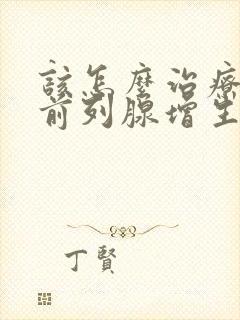 該怎麼治療
前列腺增生
丁賢